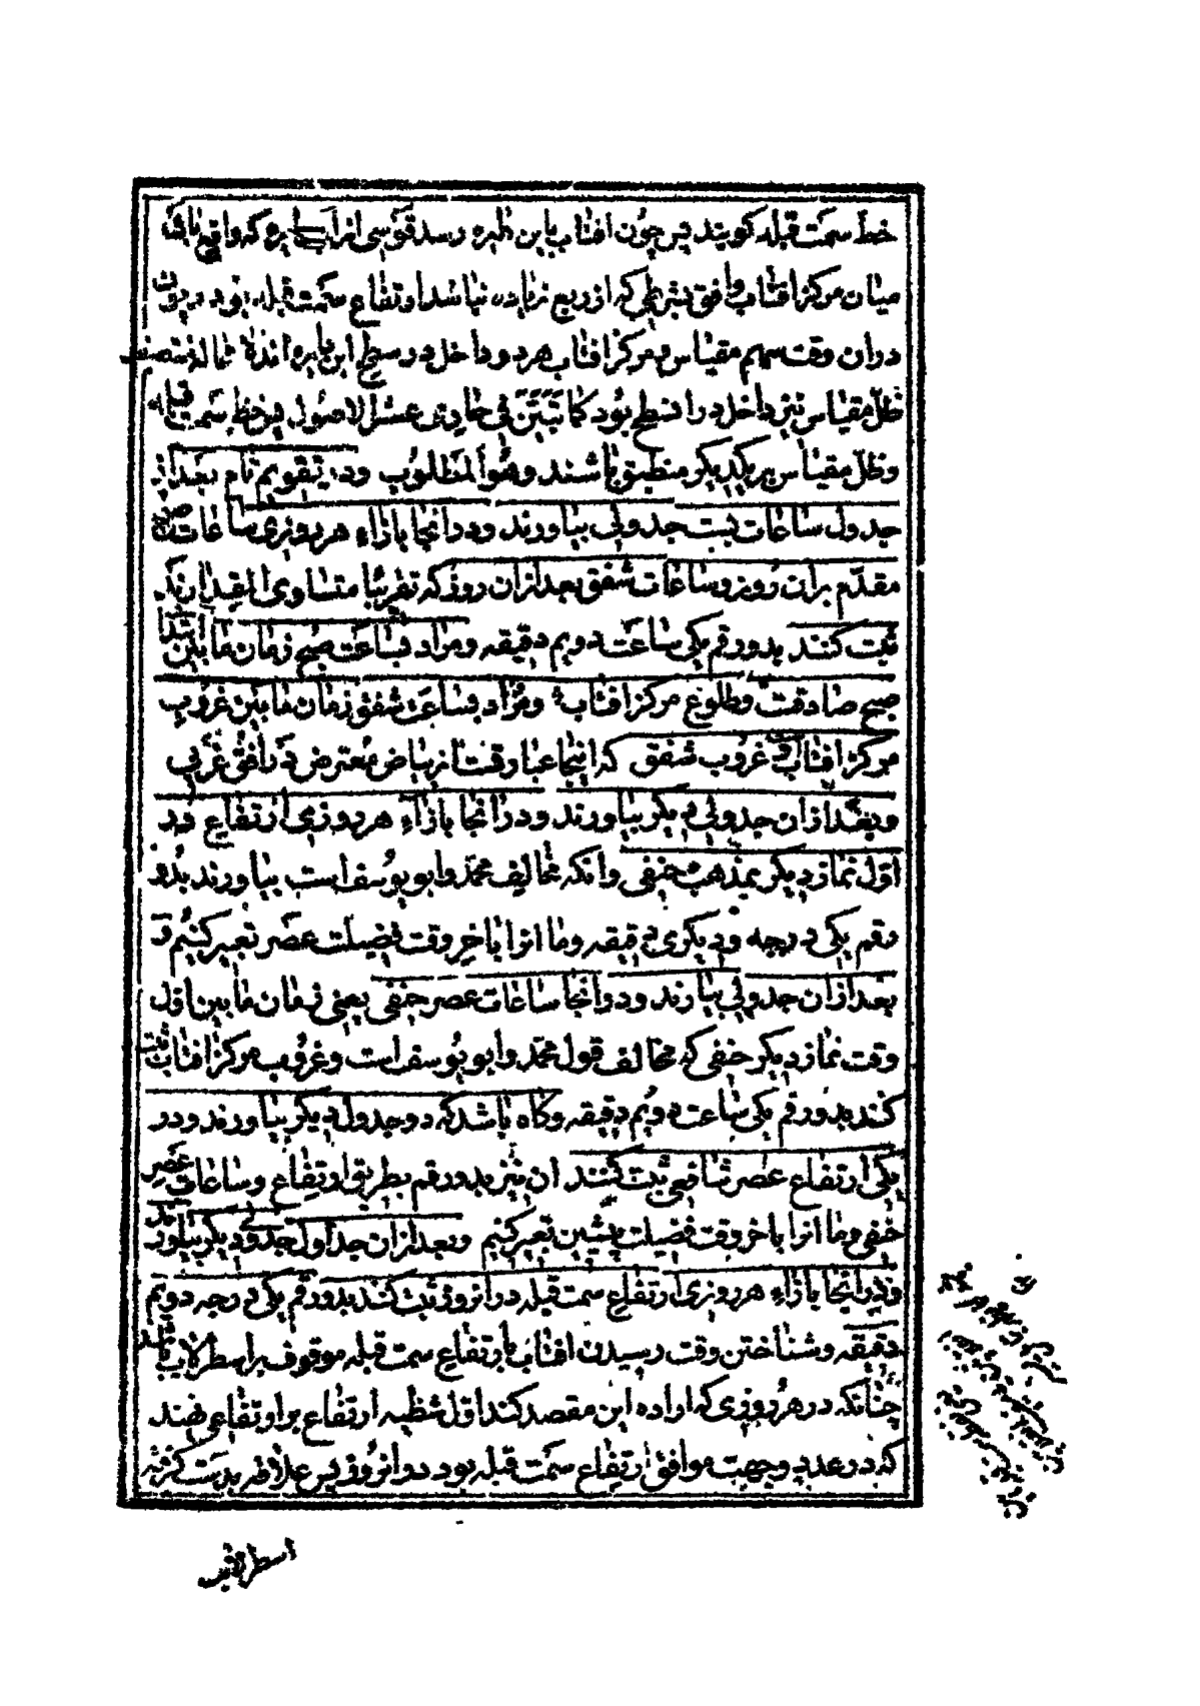 خط سمت قبله کویند پس چون افتاب باین دایره رسد قوسی از این دایره که واقع باشد
میان مرکز افتاب و افق بشرطی که از ربع زیاده نباشد ارتفاع سمت قبله بود
دران وقت سهم مقیاس و مرکز افتاب هر دو داخل در سطح این دایره اند
ظل مقیاس نیز داخل دران سطح بود کما تبین فی حادی عشر الاصول پس خط سمت قبله
و ظل مقیاس بر یکدیکر منطبق باشند و هو المطلوب و در تقویم تام بعد از
جدول ساعات بست جدولی بیاورند و در انجا بازاء هر روزی ساعات صبح
مقدم بران روز و ساعات شفق بعد ازان روز که تقریبا متساوی المقدارند
ثبت کنند بدو رقم یکی ساعت دویم دقیقه و مراد بساعت صبح زمان ما بین
صبح صادقست و طلوع مرکز افتاب و مراد بساعت شفق زمان ما بین غروب
مرکز افتاب و غروب شفق که اینجا عبارتست از بیاض معترض در افق غربی
و بعد ازان جدولی دیکر بیاورند و در انجا بازاء هر روزی ارتفاع
اول نماز دیکر بمذهب حنفی و انکه مخالف محمد و ابو یوسف است بیاورند بدو
رقم یکی درجه و دیکری دقیقه و ما انرا باخر وقت فضیلت عصر تعبیر کنیم و
بعد ازان جدولی بیارند و در انجا ساعات عصر حنفی یعنی زمان ما بین اول
وقت نماز دیکر حنفی که مخالف قول محمد و ابو یوسف است و غروب مرکز افتاب ثبت
کنند بدو رقم یکی ساعت دویم دقیقه و کاه باشد که دو جدول دیکر بیاورند و در
یکی ارتفاع عصر شافعی ثبت کنند ان نیز بدو رقم بطریق ارتفاع و ساعات عصر
حنفی و ما انرا باخر وقت فضیلت پیشین تعبیر کنیم و بعد ازان جداول جدولی دیکر بیاورند
و در انجا بازاء هر روزی ارتفاع سمت قبله در انروز ثبت کنند بدو رقم یکی درجه دویم
دقیقه و شناختن وقت رسیدن افتاب بارتفاع سمت قبله موقوف بر اسطرلاب باشد
چنانکه در هر روزی که اراده این مقصد کند اول شظیه ارتفاع بر ارتفاعی نهند
که در عدد و جهت موافق ارتفاع سمت قبله بود در انروز پس علاقه بدست کرفته
اسطرلاب